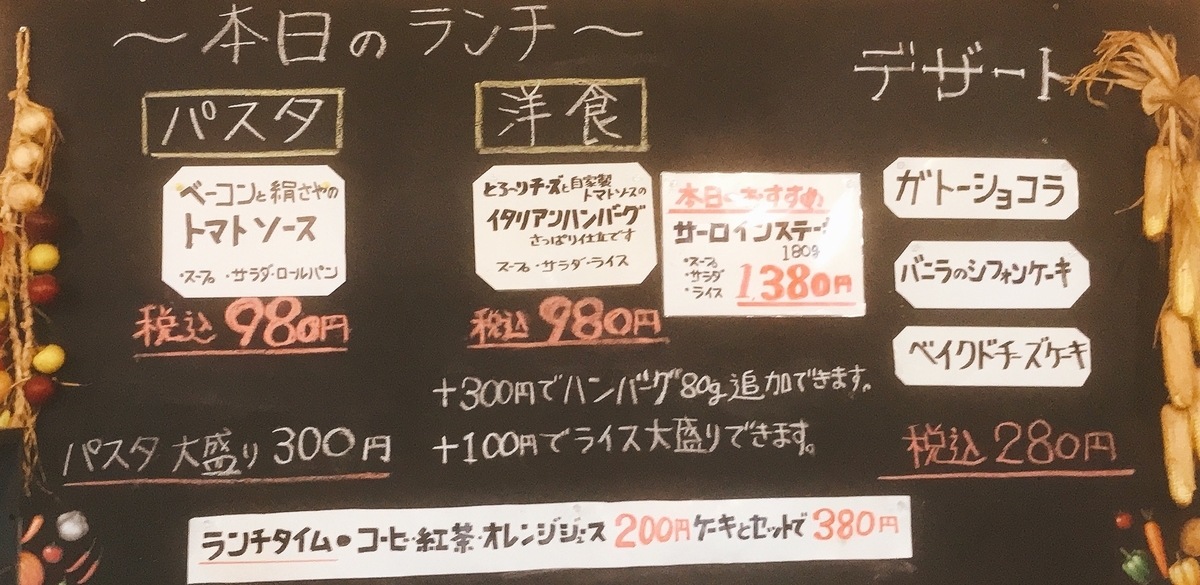 ～本日のランチ～
パスタ
ベーコンと絹さやの
トマトソース
・スープ ・サラダ・ロールパン
税込 980円
パスタ 大盛り 300円
洋食
とろ～りチーズと自家製
トマトソースの
イタリアンハンバーグ
さっぱり仕立です
スープ・サラダ・ライス
税込 980円
本日のおすすめ
サーロインステーキ
180g
・スープ
・サラダ
・ライス
1,380円
+300円でハンバーグ80g追加できます。
+100円でライス大盛りできます。
デザート
ガトーショコラ
バニラのシフォンケーキ
ベイクドチーズケーキ
税込 280円
ランチタイム●コーヒー・紅茶・オレンジジュース 200円 ケーキとセットで 380円